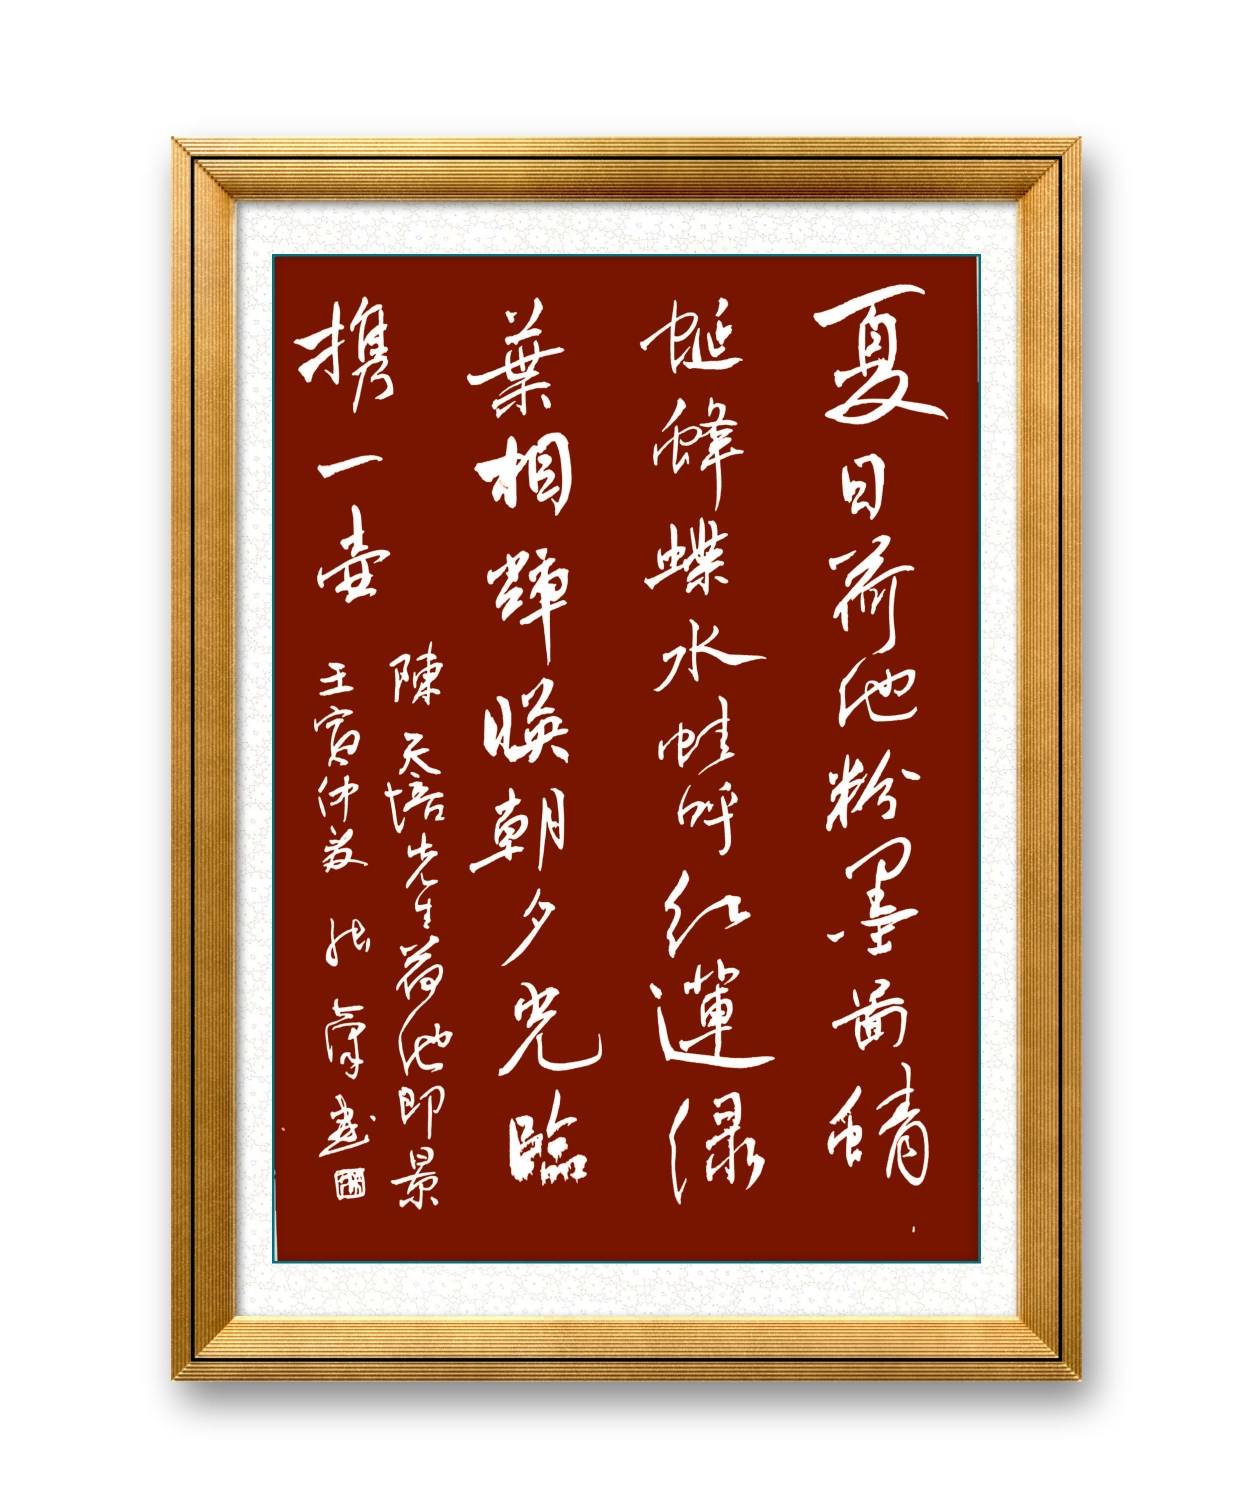 夏日荷池粉墨圖蜻
蜓蜂蝶水蛙呼紅蓮绿
葉相輝暎朝夕光臨
携一壺
陳天培先生荷池即景
壬寅仲夏 書